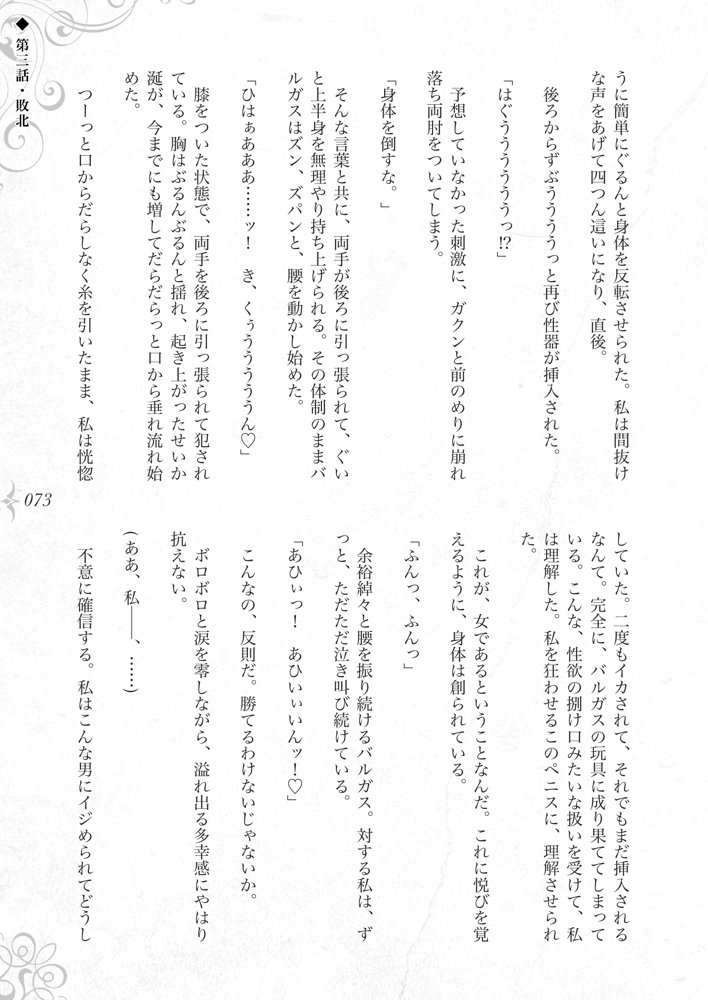 ◆ 第三話・敗北
うに簡単にぐるんと身体を反転させられた。私は間抜け
な声をあげて四つん這いになり、直後。
後ろからずぶぅうううっと再び性器が挿入された。
「はぐぅううううううっ!?」
予想していなかった刺激に、ガクンと前のめりに崩れ
落ち両肘をついてしまう。
「身体を倒すな。」
そんな言葉と共に、両手が後ろに引っ張られて、ぐい
と上半身を無理やり持ち上げられる。その体制のままバ
ルガスはズン、ズパンと、腰を動かし始めた。
「ひはぁあああ……ッ! き、くぅうううううん♡」
膝をついた状態で、両手を後ろに引っ張られて犯され
ている。胸はぶるんぶるんと揺れ、起き上がったせいか
涎が、今までにも増してだらだらっと口から垂れ流れ始
めた。
つーっと口からだらしなく糸を引いたまま、私は恍惚
していた。二度もイカされて、それでもまだ挿入される
なんて。完全に、バルガスの玩具に成り果ててしまって
いる。こんな、性欲の捌け口みたいな扱いを受けて、私
は理解した。私を狂わせるこのペニスに、理解させられ
た。
これが、女であるということなんだ。これに悦びを覚
えるように、身体は創られている。
「ふんっ、ふんっ」
余裕綽々と腰を振り続けるバルガス。対する私は、ず
っと、ただただ泣き叫び続けている。
「あひぃっ! あひいぃいんッ!♡」
こんなの、反則だ。勝てるわけないじゃないか。
ボロボロと涙を零しながら、溢れ出る多幸感にやはり
抗えない。
(ああ、私――、……)
不意に確信する。私はこんな男にイジめられてどうし
073